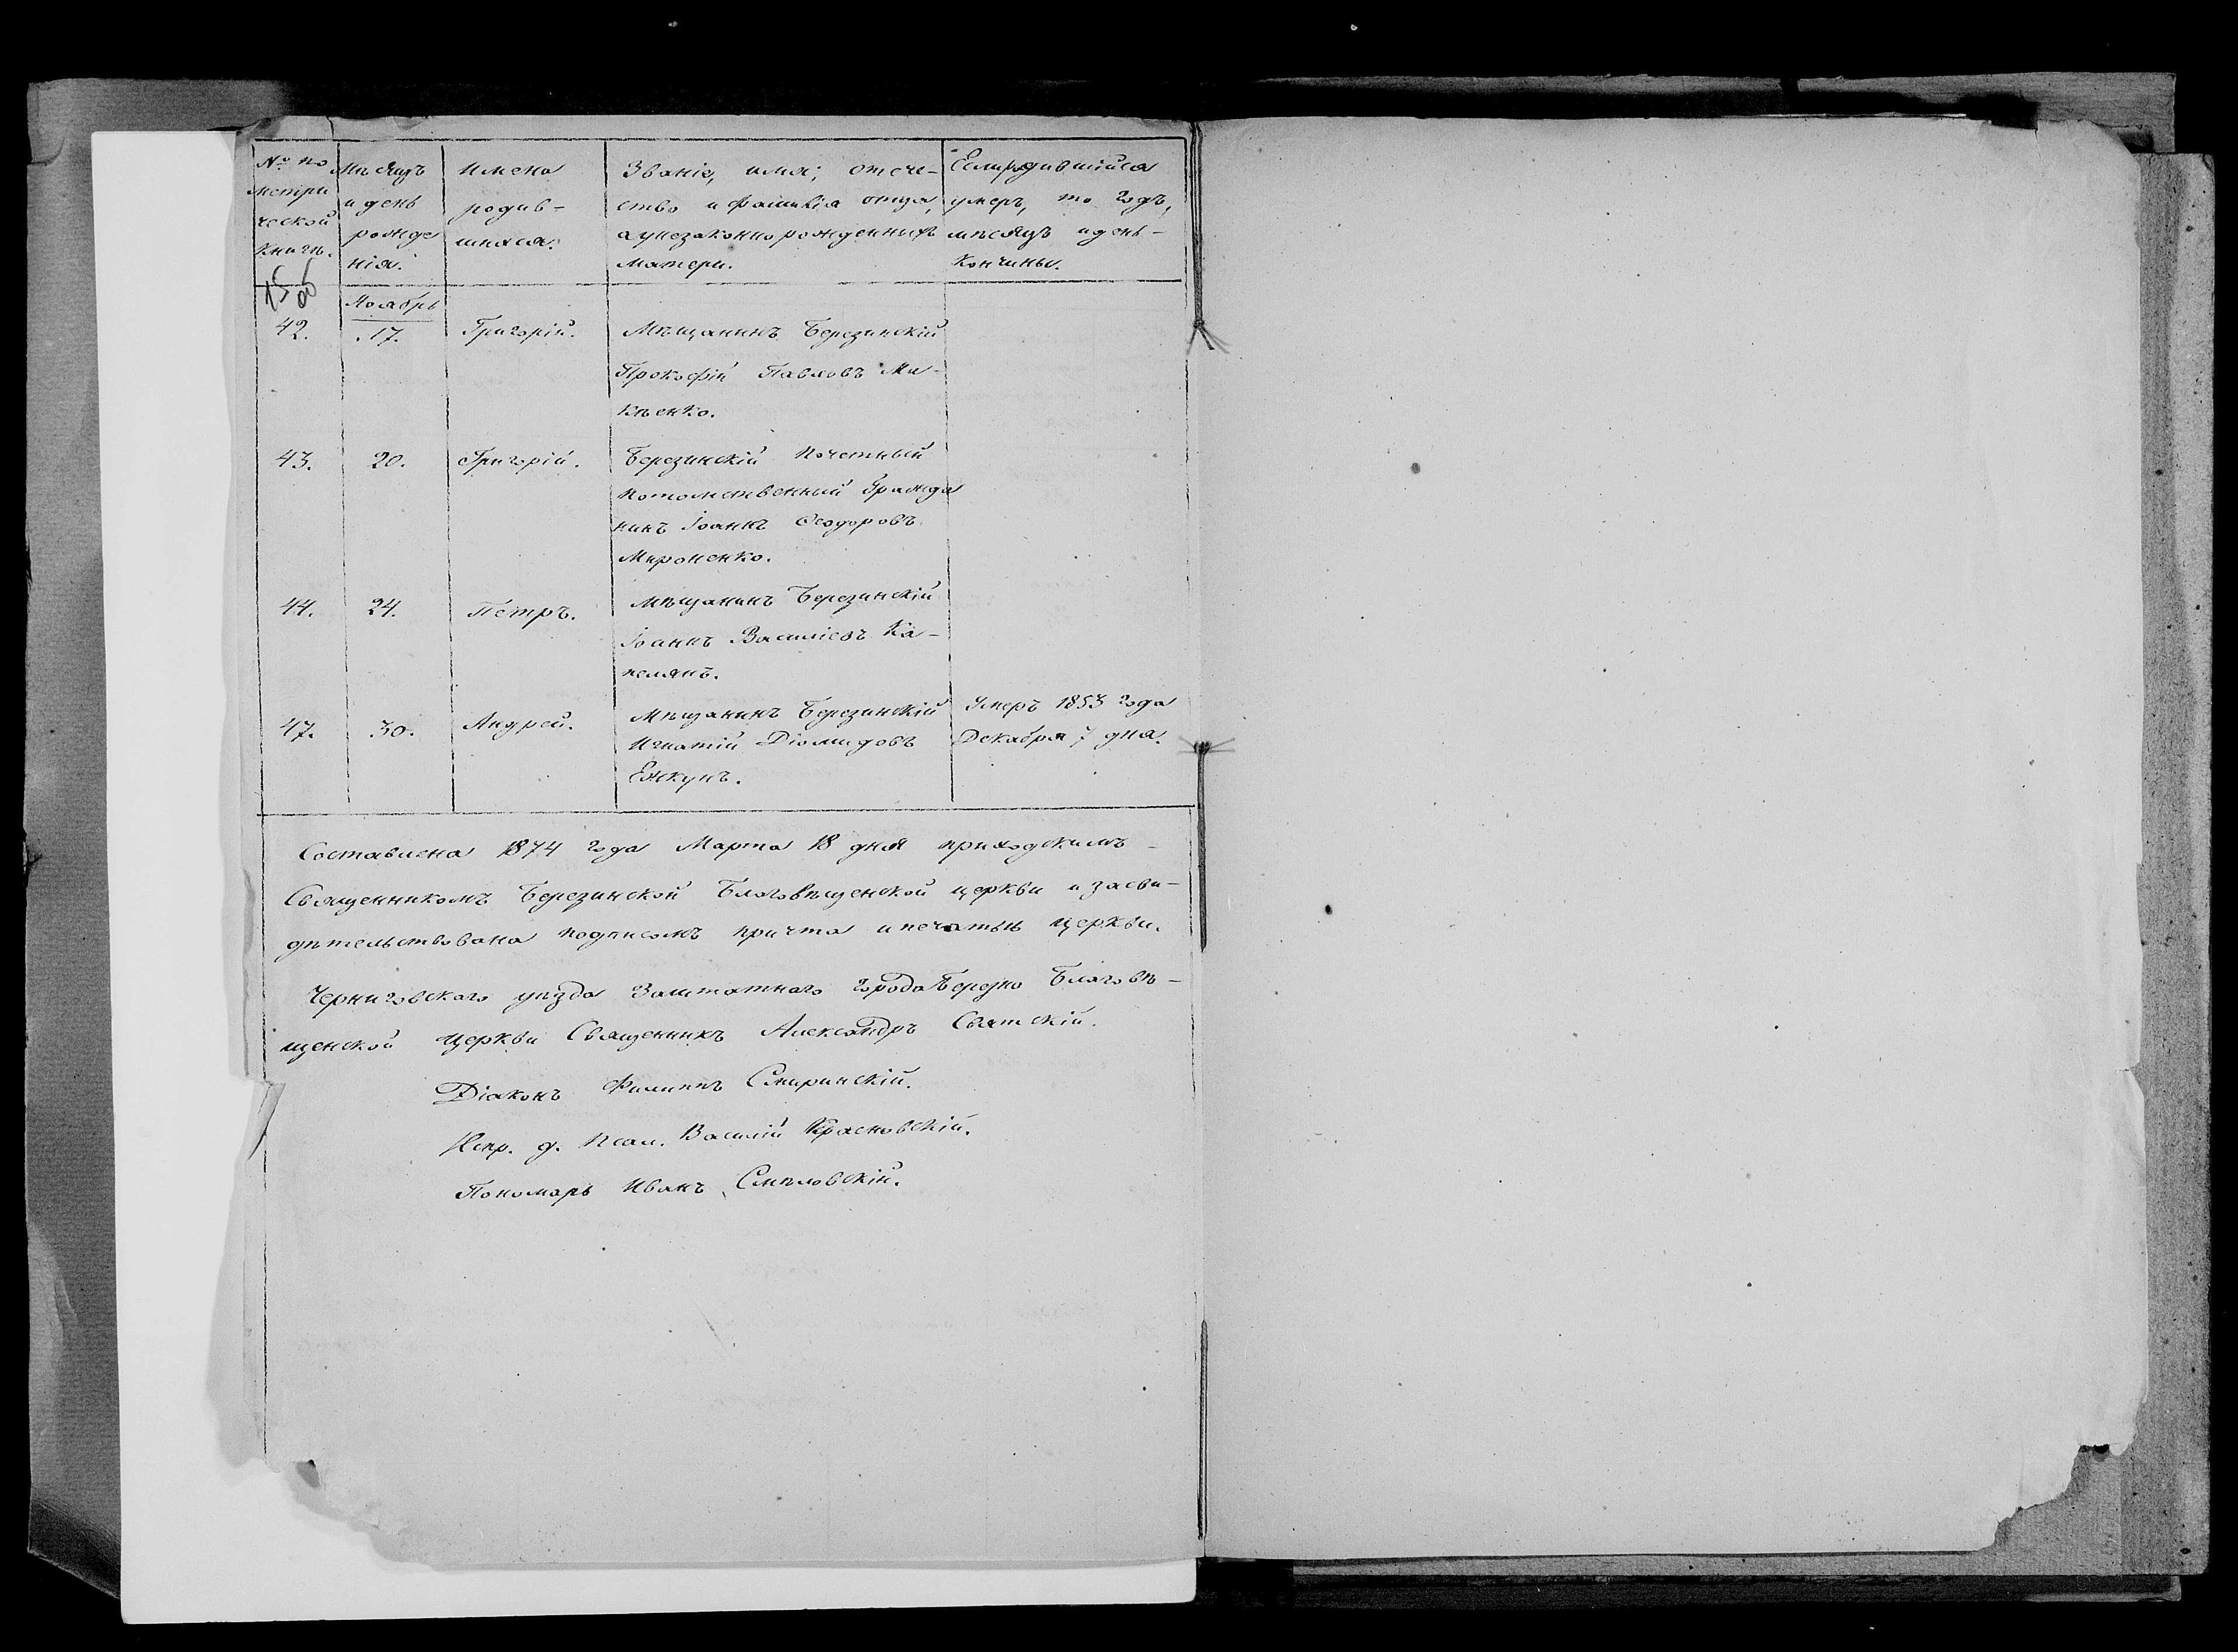 № по метри ческой Книгѣ.
Мѣсяцъ и день рожде нія.
Имена родив- шихся.
Званіе, имя, отече- ство и фамилія отца, а у незаконнорожденныхъ матери.
Если родившійся умеръ, то годъ, мѣсяцъ и день- кончины.
15 об
Ноябрь
42. 17. Григорій. Мѣщанинъ Березинскій
Прокофій Павловъ Ми-
кѣенко.
43. 20. Григорій. Березинскій Почетный
потомственный Гражда
нинъ Іоаннъ Ѳеодоровъ
Мироненко.
44. 24. Петръ. Мѣщанинъ Березинскій
Іоаннъ Василіевъ Ка-
пелянъ.
47. 30. Андрей. Мѣщанинъ Березинскій Умеръ 1853 года
Игнатій Діомидовъ Декабря 7 дня.
Ежкунъ.
Составлена 1874 года Марта 18 дня приходскимъ-
Священникомъ Березинской Благовѣщенской церкви и засви-
дѣтельствована подписомъ причта и печатью церкви.
Черниговскаго уѣзда Заштатнаго города Березно Благовѣ-
щенской церкви Священникъ Александръ Святскій.
Діаконъ Филиппъ Смиринскій.
Испр. д. Псал. Василій Красновскій.
Пономарь Иванъ Смѣловскій.